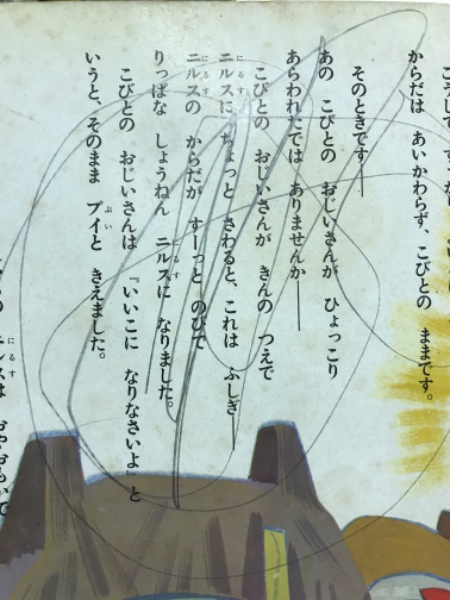 こうして
からだは あいかわらず、こびとの ままです。
そのときです──
あの こびとの おじいさんが ひょっこり
あらわれたでは ありませんか──
こびとの おじいさんが きんの つえで
ニルスに ちょっと さわると、これは ふしぎ──
ニルスの からだが すーっと のびて
りっぱな しょうねん ニルスに なりました。
こびとの おじいさんは 「いいこに なりなさいよ」と
いうと、そのまま プイと きえました。